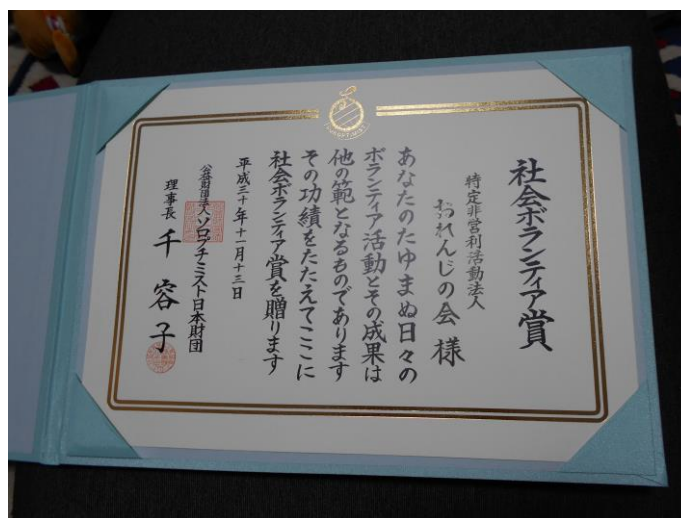 社会ボランティア賞
特定非営利活動法人
おれんじの会 様
あなたのたゆまぬ日々の
ボランティア活動とその成果は
他の範となるものであります
その功績をたたえてここに
社会ボランティア賞を贈ります
平成三十年十一月十三日
公益財団法人ソロプチミスト日本財団
理事長 千容子